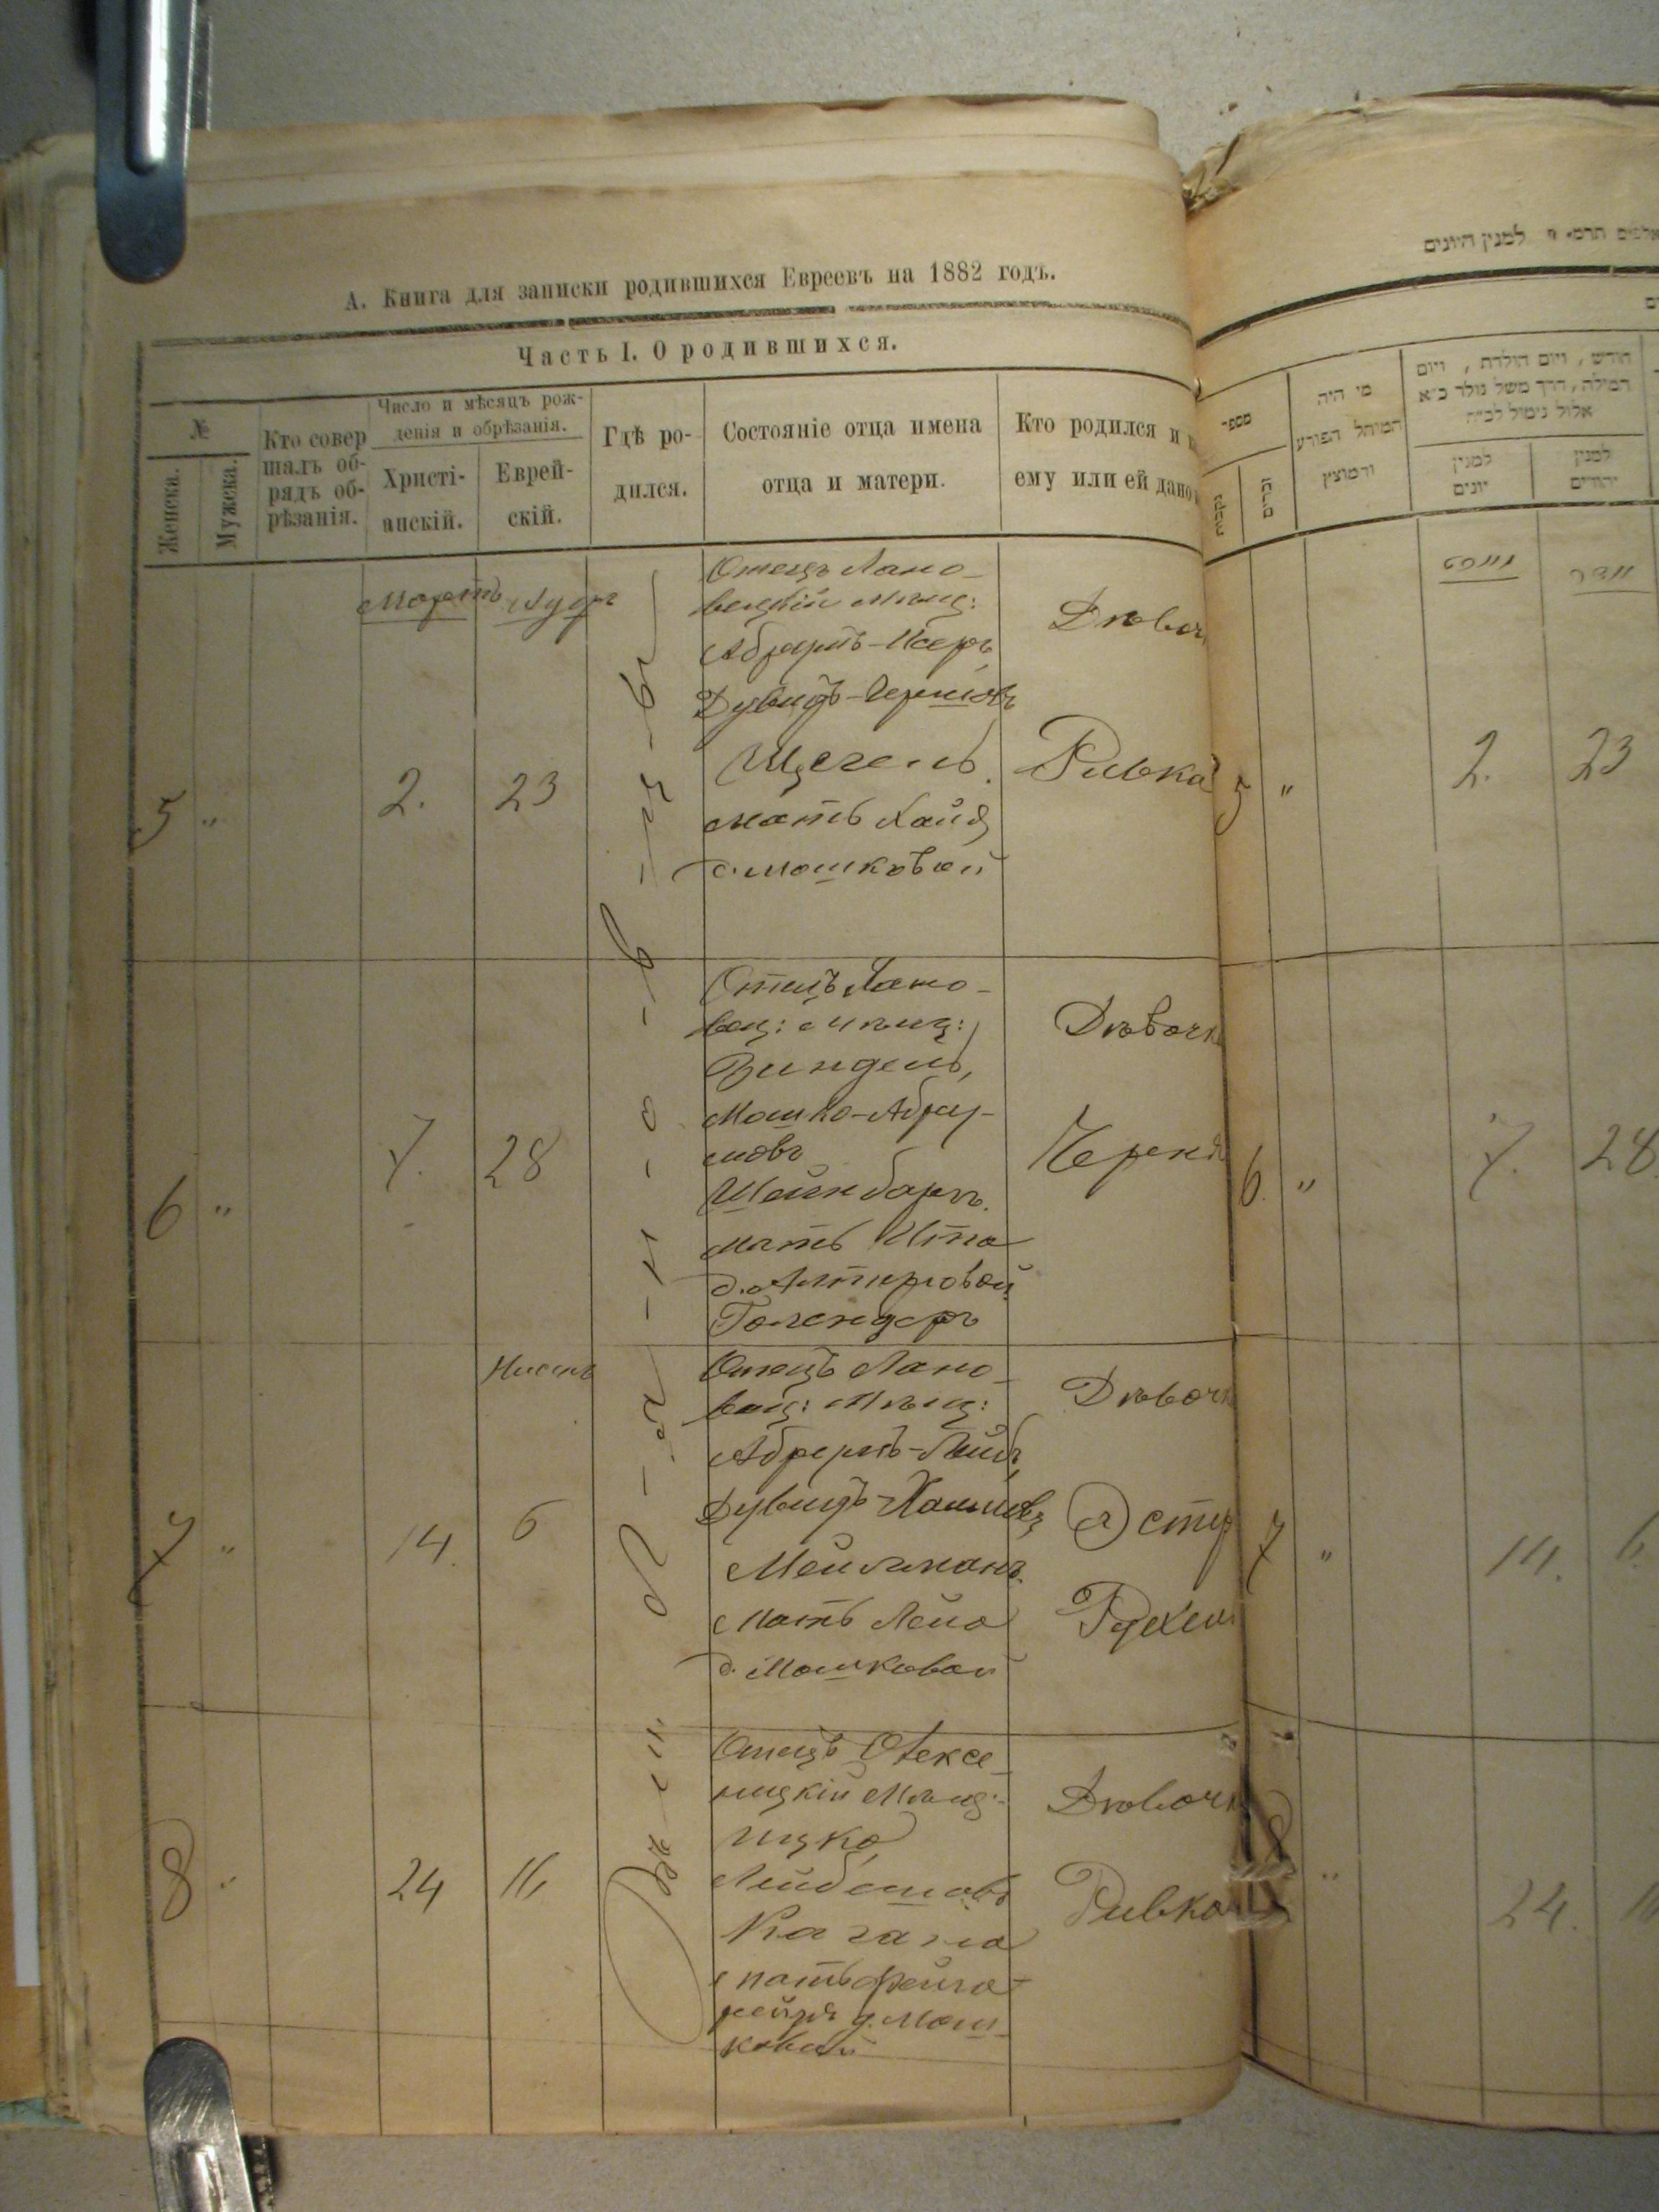 А. Книга для записки родившихся Евреевъ на 1882 годъ.
Часть I. О родившихся.
№
Женска.
Мужска.
Кто совер
шалъ об-
рядъ об-
рѣзанія.
Число и мѣсяцъ рож-
денія и обрѣзанія.
Христі-
анскій.
Еврей-
скій.
Гдѣ ро-
дился.
Состояніе отца имена
отца и матери.
Кто родился и
ему или ей дано
Мартъ Адаръ
5 " 2. 23
Отецъ Лано-
вецкій Мѣщ:
Абрамъ-Исеръ
Дувидъ-Гершовъ
Щегель.
мать Хая
д. Мошковой
Дѣвоч
Ривка
6 " 7. 28
Отецъ Лано-
вец: Мѣщ:
Зиндель,
Мошко-Абра-
мовъ
Шейнбаръ.
мать Ита
д. Алтеровой
Голендеръ
Дѣвочк
Черня
Нисонъ
7 " 14. 6
Отецъ Лано-
вец: Мѣщ:
Абрамъ-Лейб
Дувидъ-Хаимовъ
Мейлманъ.
Мать Лея
д. Мошковой
Дѣвочк
Эстер
Рухел
8 " 24 16
Отецъ
ницкій Мѣщ:
Ицко,
Лейбошовъ
Кагана
мать Фейга-
рейзя д. Мош-
ковой
Дѣвочк
Ривка
Въ м. Л-а-н-о-в-ц-а-х
למנין היונים
מספ־
נקבות
זכרים
מי היה
המוהל הפורע
ומוצץ
חודש, ויום הולדת, ויום
המילה, הדך משל נולד כ״א
אלול נימול לכ״ח
למנין
יונים
למנין
יהודים
מארט
אדר
5 " 2. 23
6. " 7. 28
7 " 14. 6.
8 " 24.